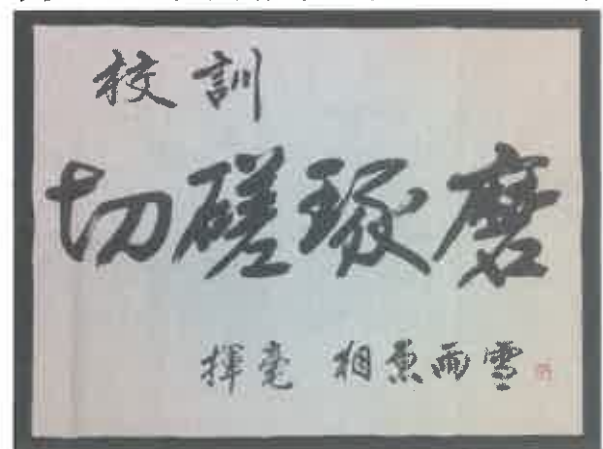 校訓
切磋琢磨
揮毫 相原雨雪